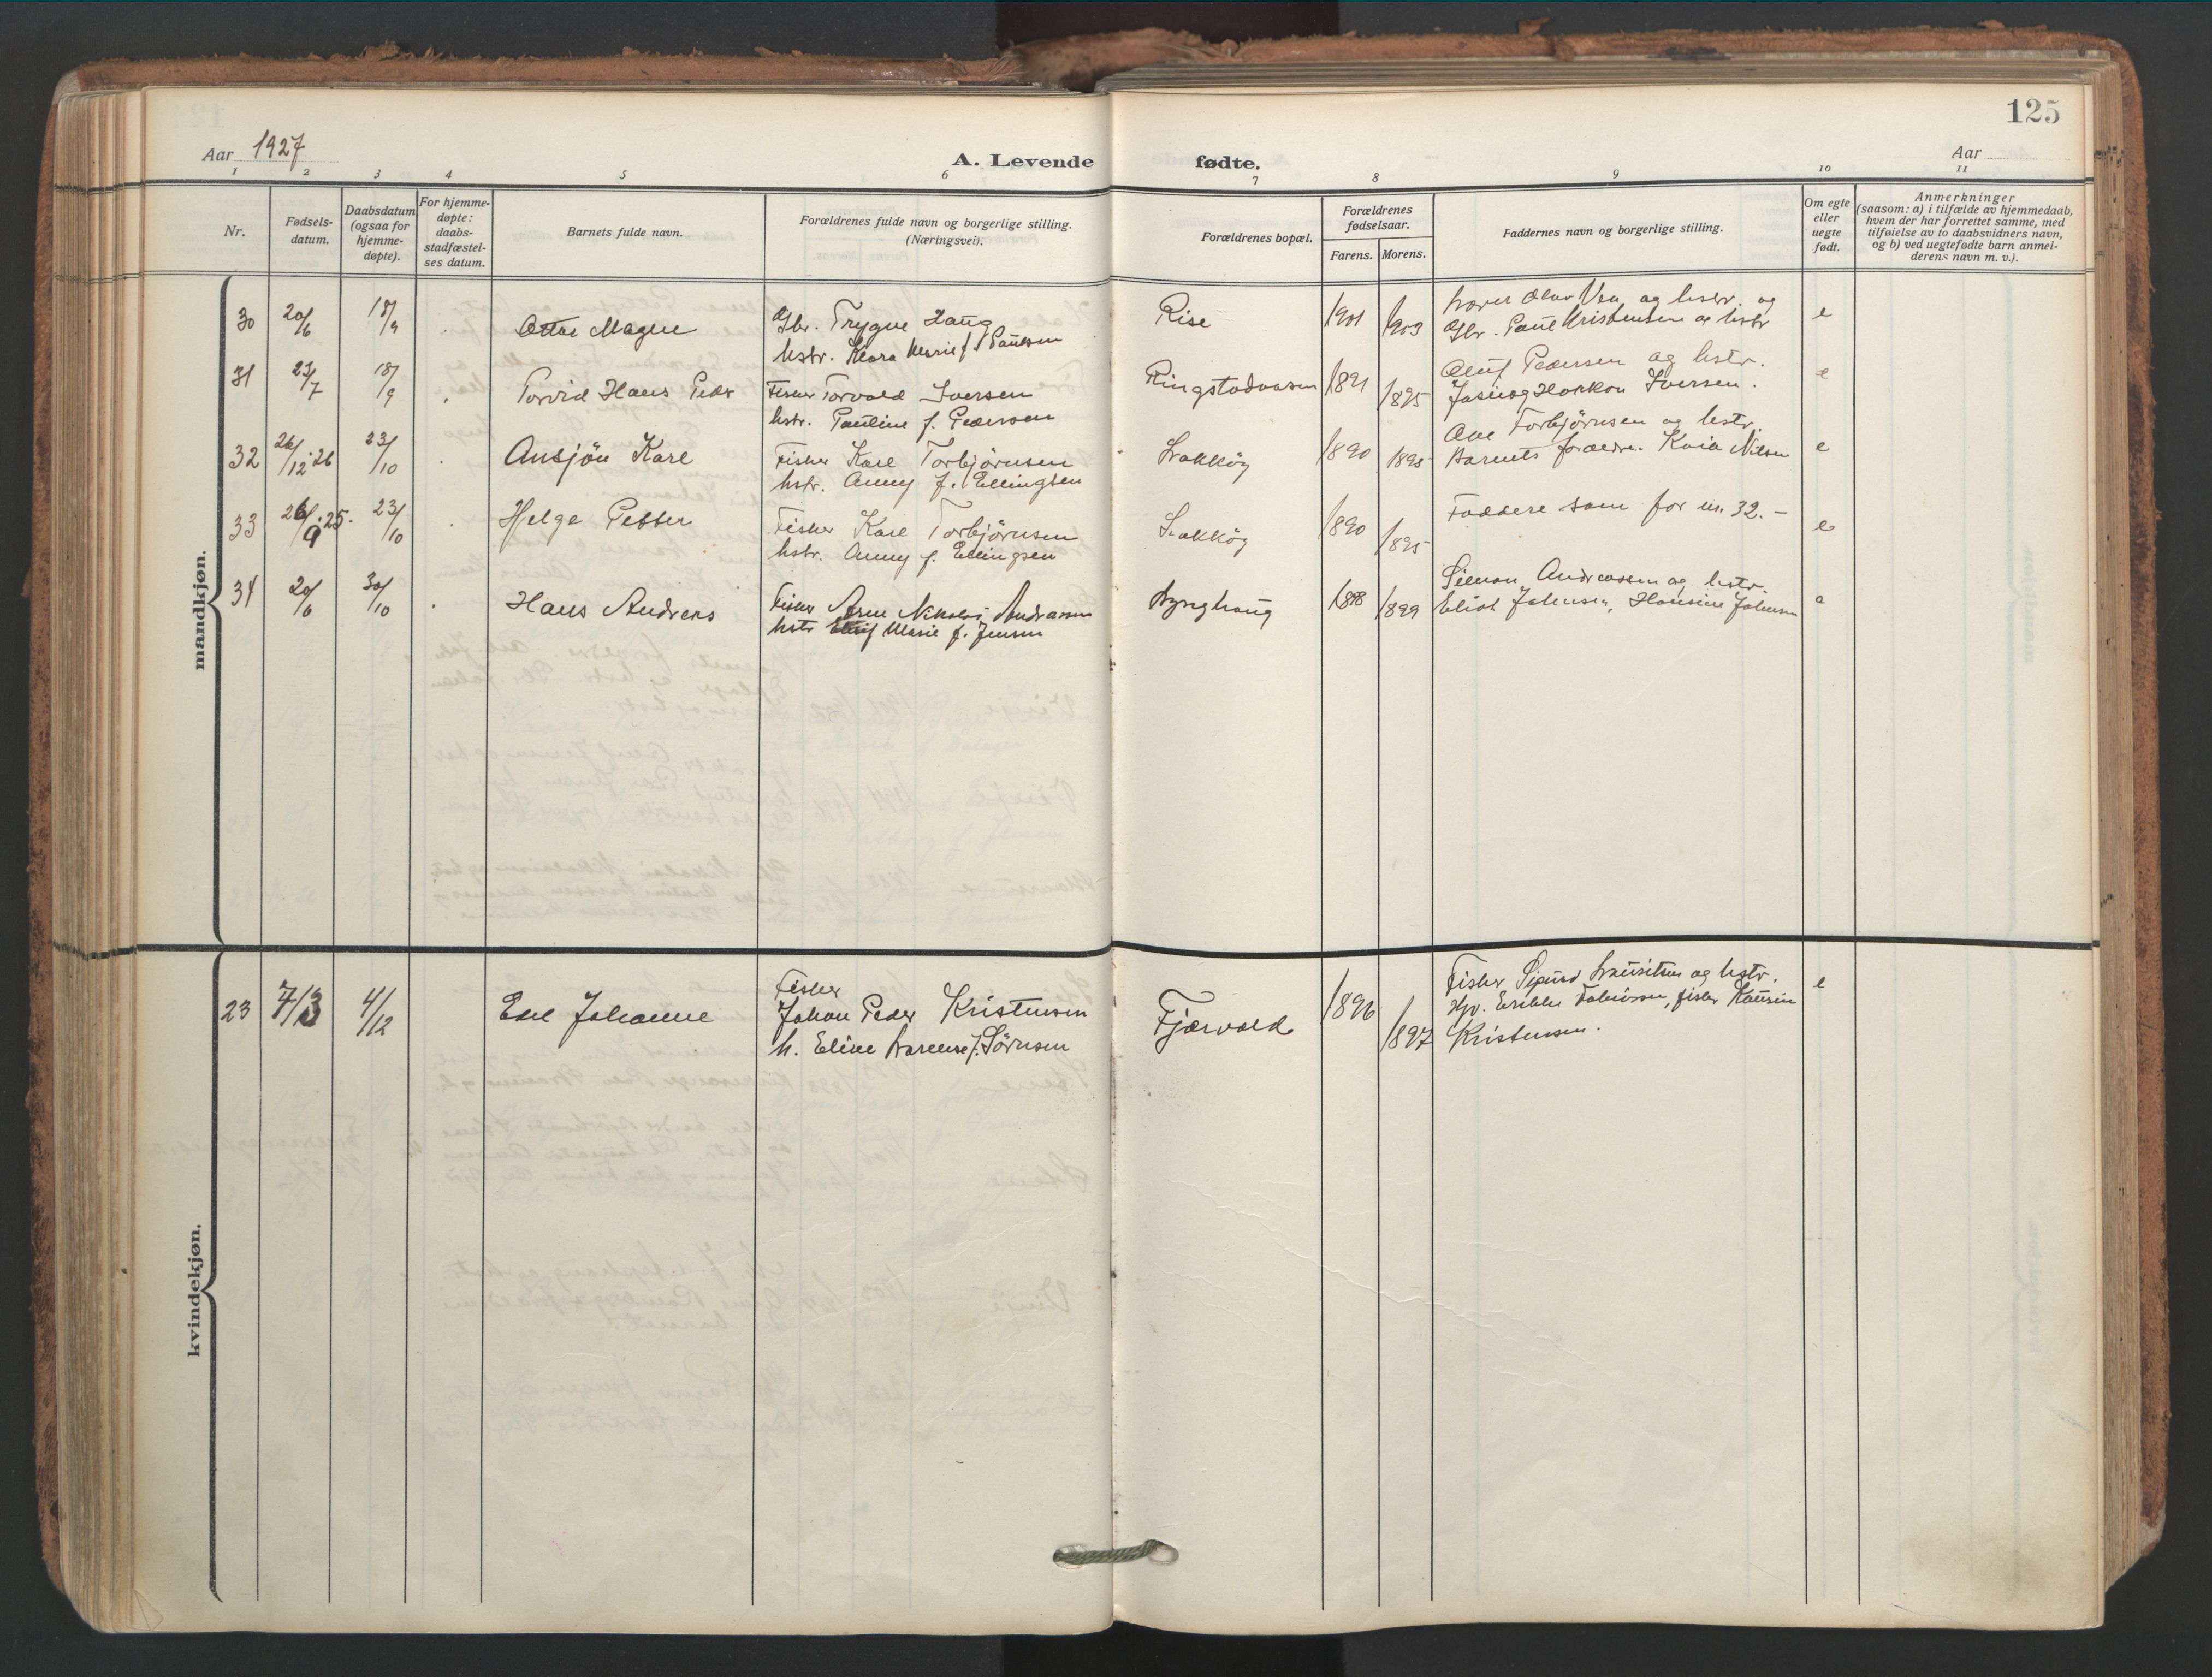 125
Aar 1927
A. Levende fødte.
Aar
1 2 3 4 5 6 7 8 9 10 11
Nr.
Fødsels-
datum.
Daabsdatum
(ogsaa for
hjemme-
døpte).
For hjemme-
døpte:
daabs-
stadfæstel-
ses datum.
Barnets fulde navn.
Forældrenes fulde navn og borgerlige stilling.
(Næringsvei).
Forældrenes bopæl.
Forældrenes
fødselsaar.
Farens. Morens.
Faddernes navn og borgerlige stilling.
Om egte
eller
uegte
født.
Anmerkninger
(saasom: a) i tilfælde av hjemmedaab,
hvem der har forrettet samme, med
tilføielse av to daabsvidners navn,
og b) ved uegtefødte barn anmel-
derens navn m. v.).
mandkjøn.
30 20/6 18/9 Ottar Magne
Gbr. Trygve Haug
hstr. Klara Marie f. Paulsen
Rise 1901 1903
Olav og hstr. og
Gbr. Paul Kristensen og hstr
e
31 23/7 18/9 Torvid Hans Peder
Fisker Torvald Iversen
hstr. Pauline f. Pedersen
Ringstadvaasen 1891 1895
Oluf Pedersen og hstr.
og Haakon Iversen.
e
32 26/12 26 23/10 Ansjön Kare
Fisker Karl Torbjörnsen
hstr. Anny f. Ellingsen
1890 1895
Torbjörnsen og hstr.
Barnets forældre. Nilsen
e
33 26/9 25. 23/10 Helge Petter
Fisker Karl Torbjörnsen
hstr. Anny f. Ellingsen
1890 1895
Faddere som for nr. 32. -
e
34 20/6 30/10 Hans Andreas
Fisker Arne Nikolai Andreassen
hstr Marie f. Jensen
Lynghaug 1898 1899
Simon Andreassen og hstr.
Eliot Johnsen, Hansine Johnsen
e
kvindekjøn.
23 7/3 4/12 Edel Johanne
Fisker
Johan Peder Kristensen
h. Eline Larense f. Sörnsen
Fjærvold 1896 1897
Fisker Sigurd Lauritsen og hstr.
fisker
Kristensen.
e